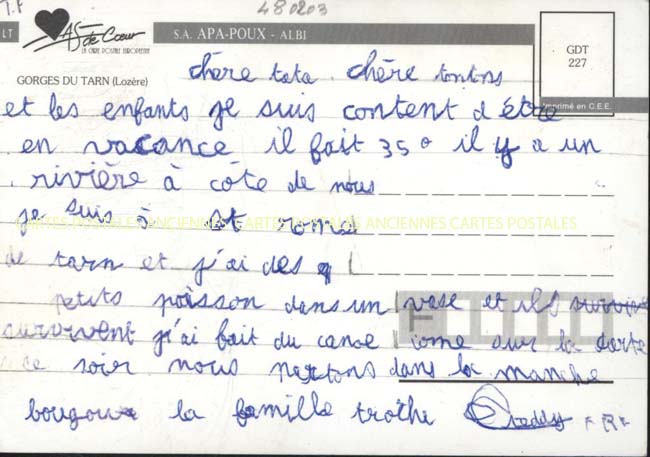 T.F 480203
LT As de Cœur S.A. APA-POUX - ALBI
LA CARTE POSTALE EUROPEENNE
GDT
227
GORGES DU TARN (Lozère) chère tata chère tontons
Imprimé en C.E.E.
et les enfants je suis content d être
en vacance il fait 35° il y a un
rivière à côte de nous
je suis à st rome
CARTES POSTALES ANCIENNES CARTES POSTALES ANCIENNES CARTES POSTALES
de tarn et j'ai des
petits poisson dans un vase et ils
survivent j'ai fait du canoe come sur la carte
ce soir nous partons dans la manche
la famille trothe Freddy